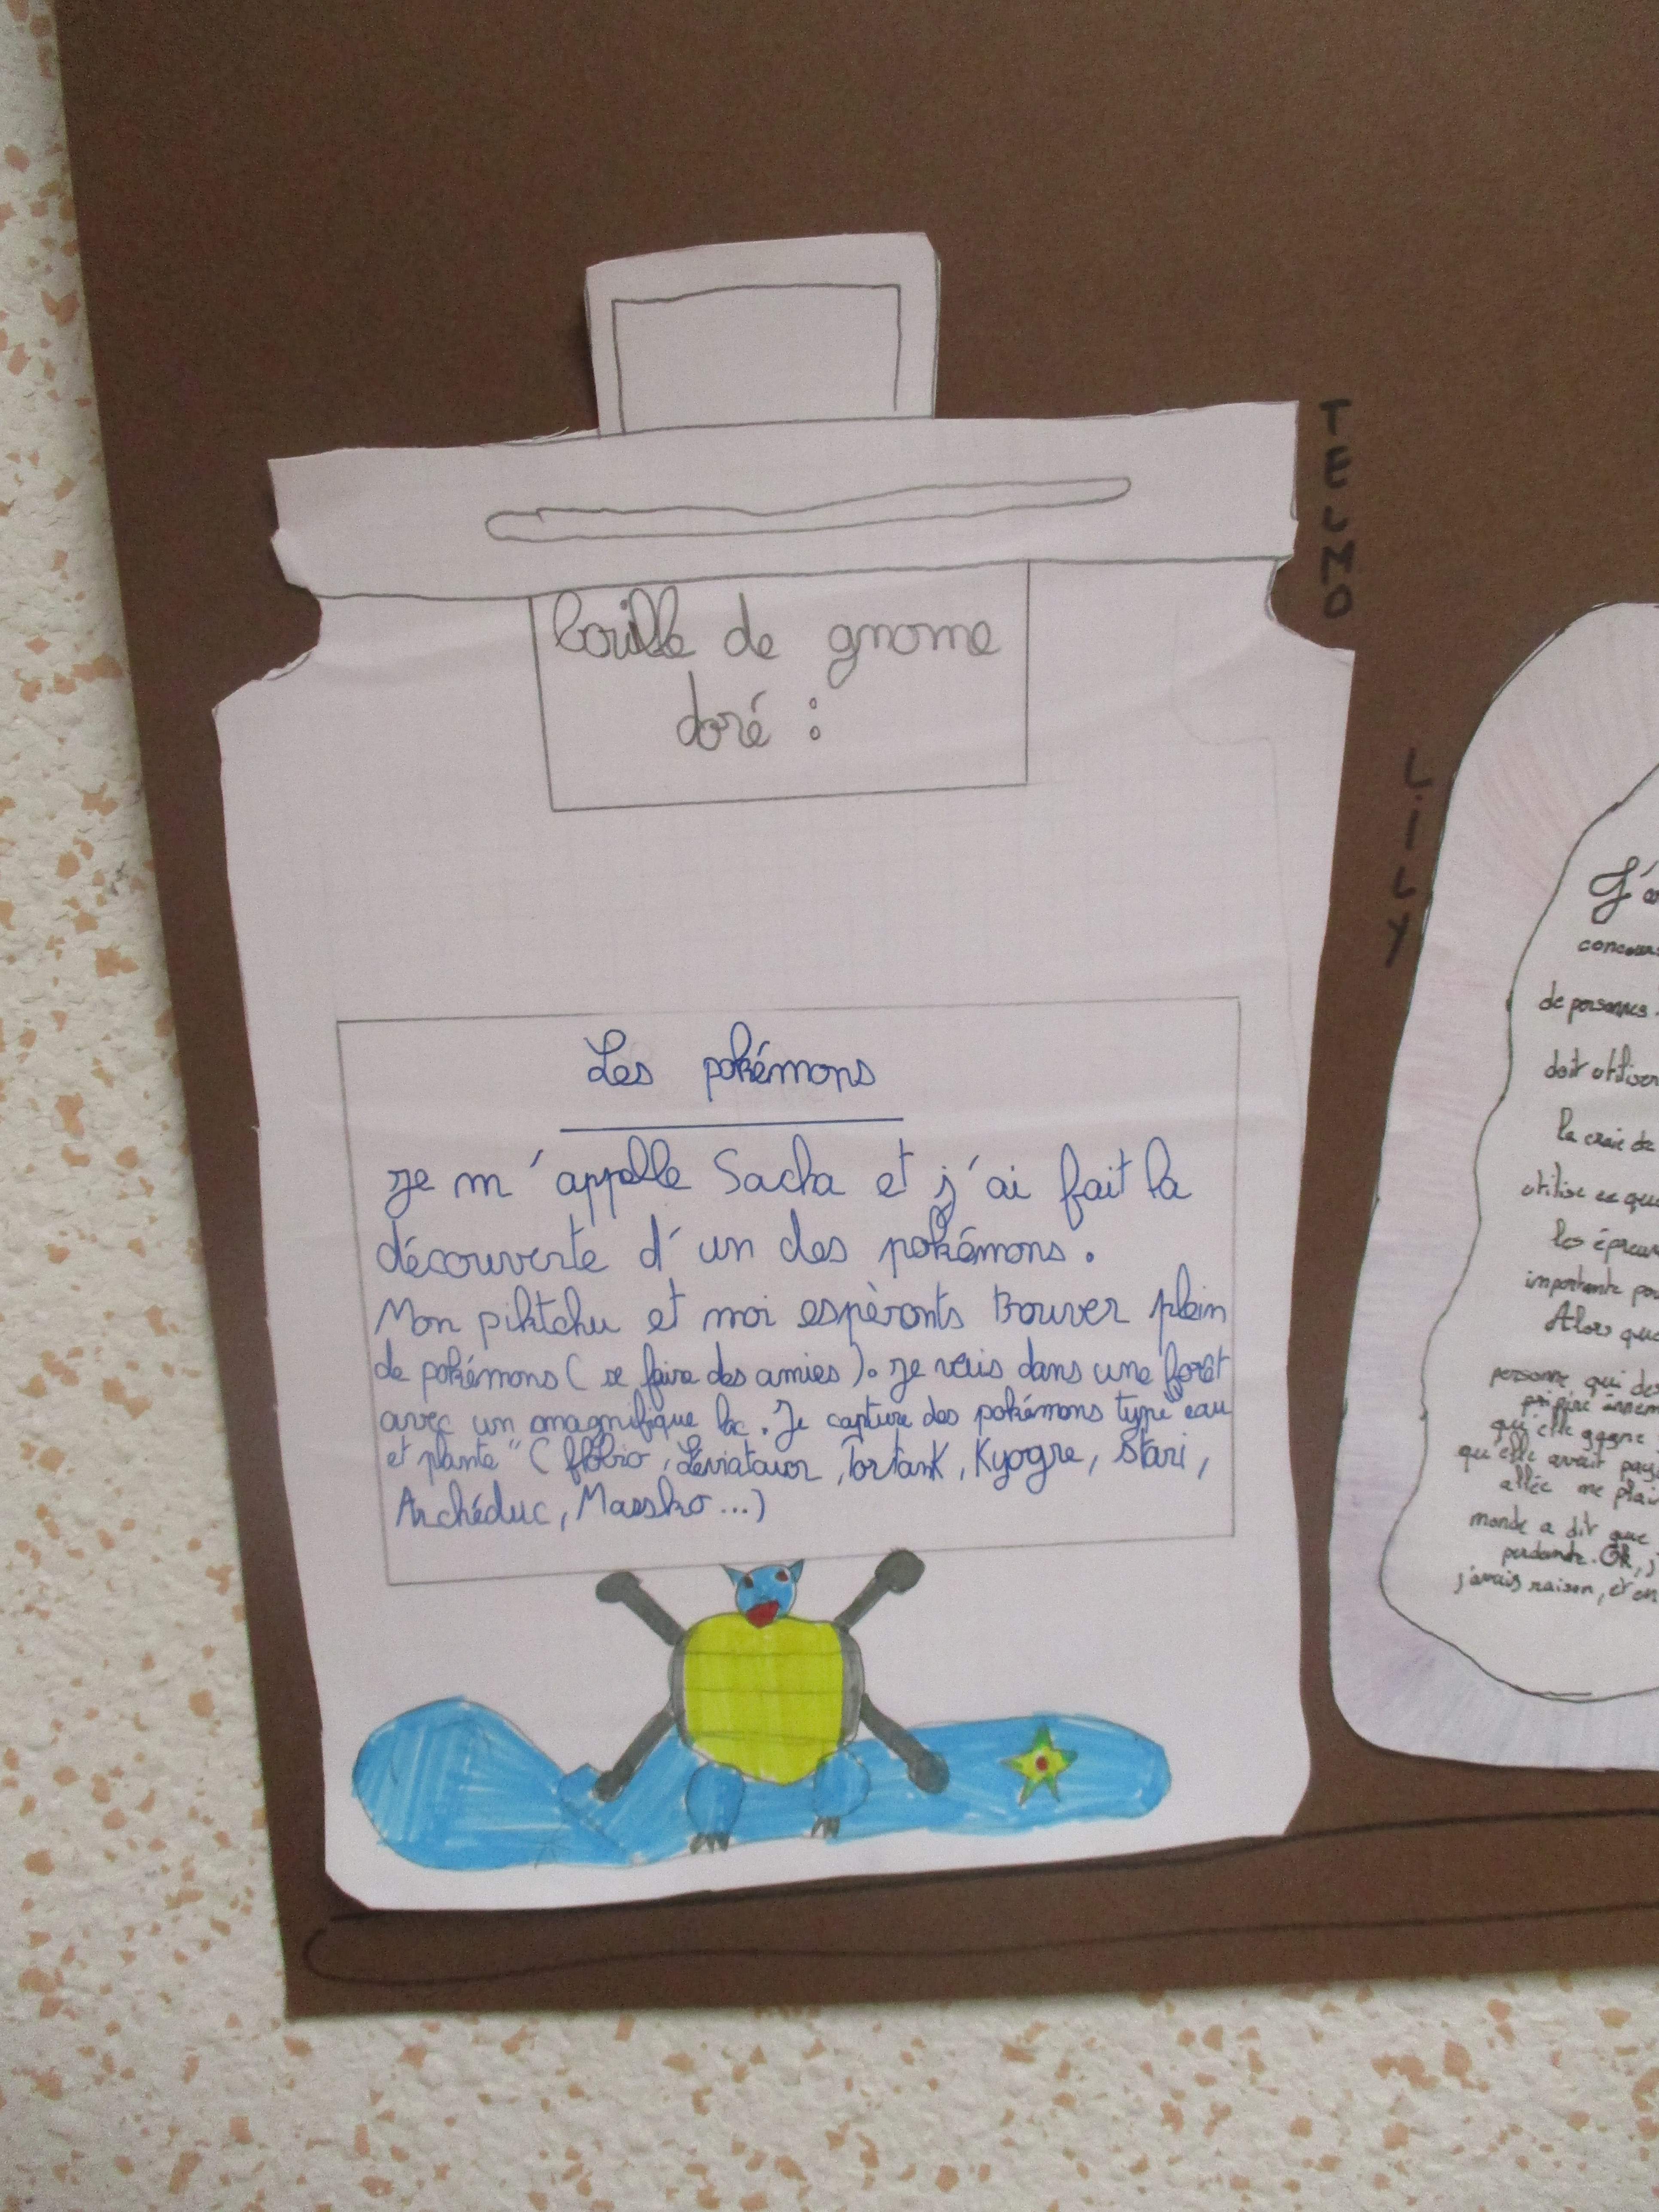 bouille de gnome
doré :
Les pokémons
Je m'appelle Sacha et j'ai fait la
découverte d'un des pokémons.
Mon piktchu et moi espèronts trouver plein
de pokémons ( se faire des amies ). Je vais dans une forêt
avec un magnifique lac. Je capture des pokémons type "eau
et plante" ( flobio, Léviataur, Tortank, Kyogre, Stari,
Archéduc, Massko ... )
TELMO
LILY
J'a
concours
de personnes.
doit utiliser
la craie de
utilise ce que
les épreuv
importante pou
Alors que
personne qui des
qu'elle gagne
qu'elle avait
allée me plai
monde a dit que
perdante. Ok, j
j'avais raison, et en